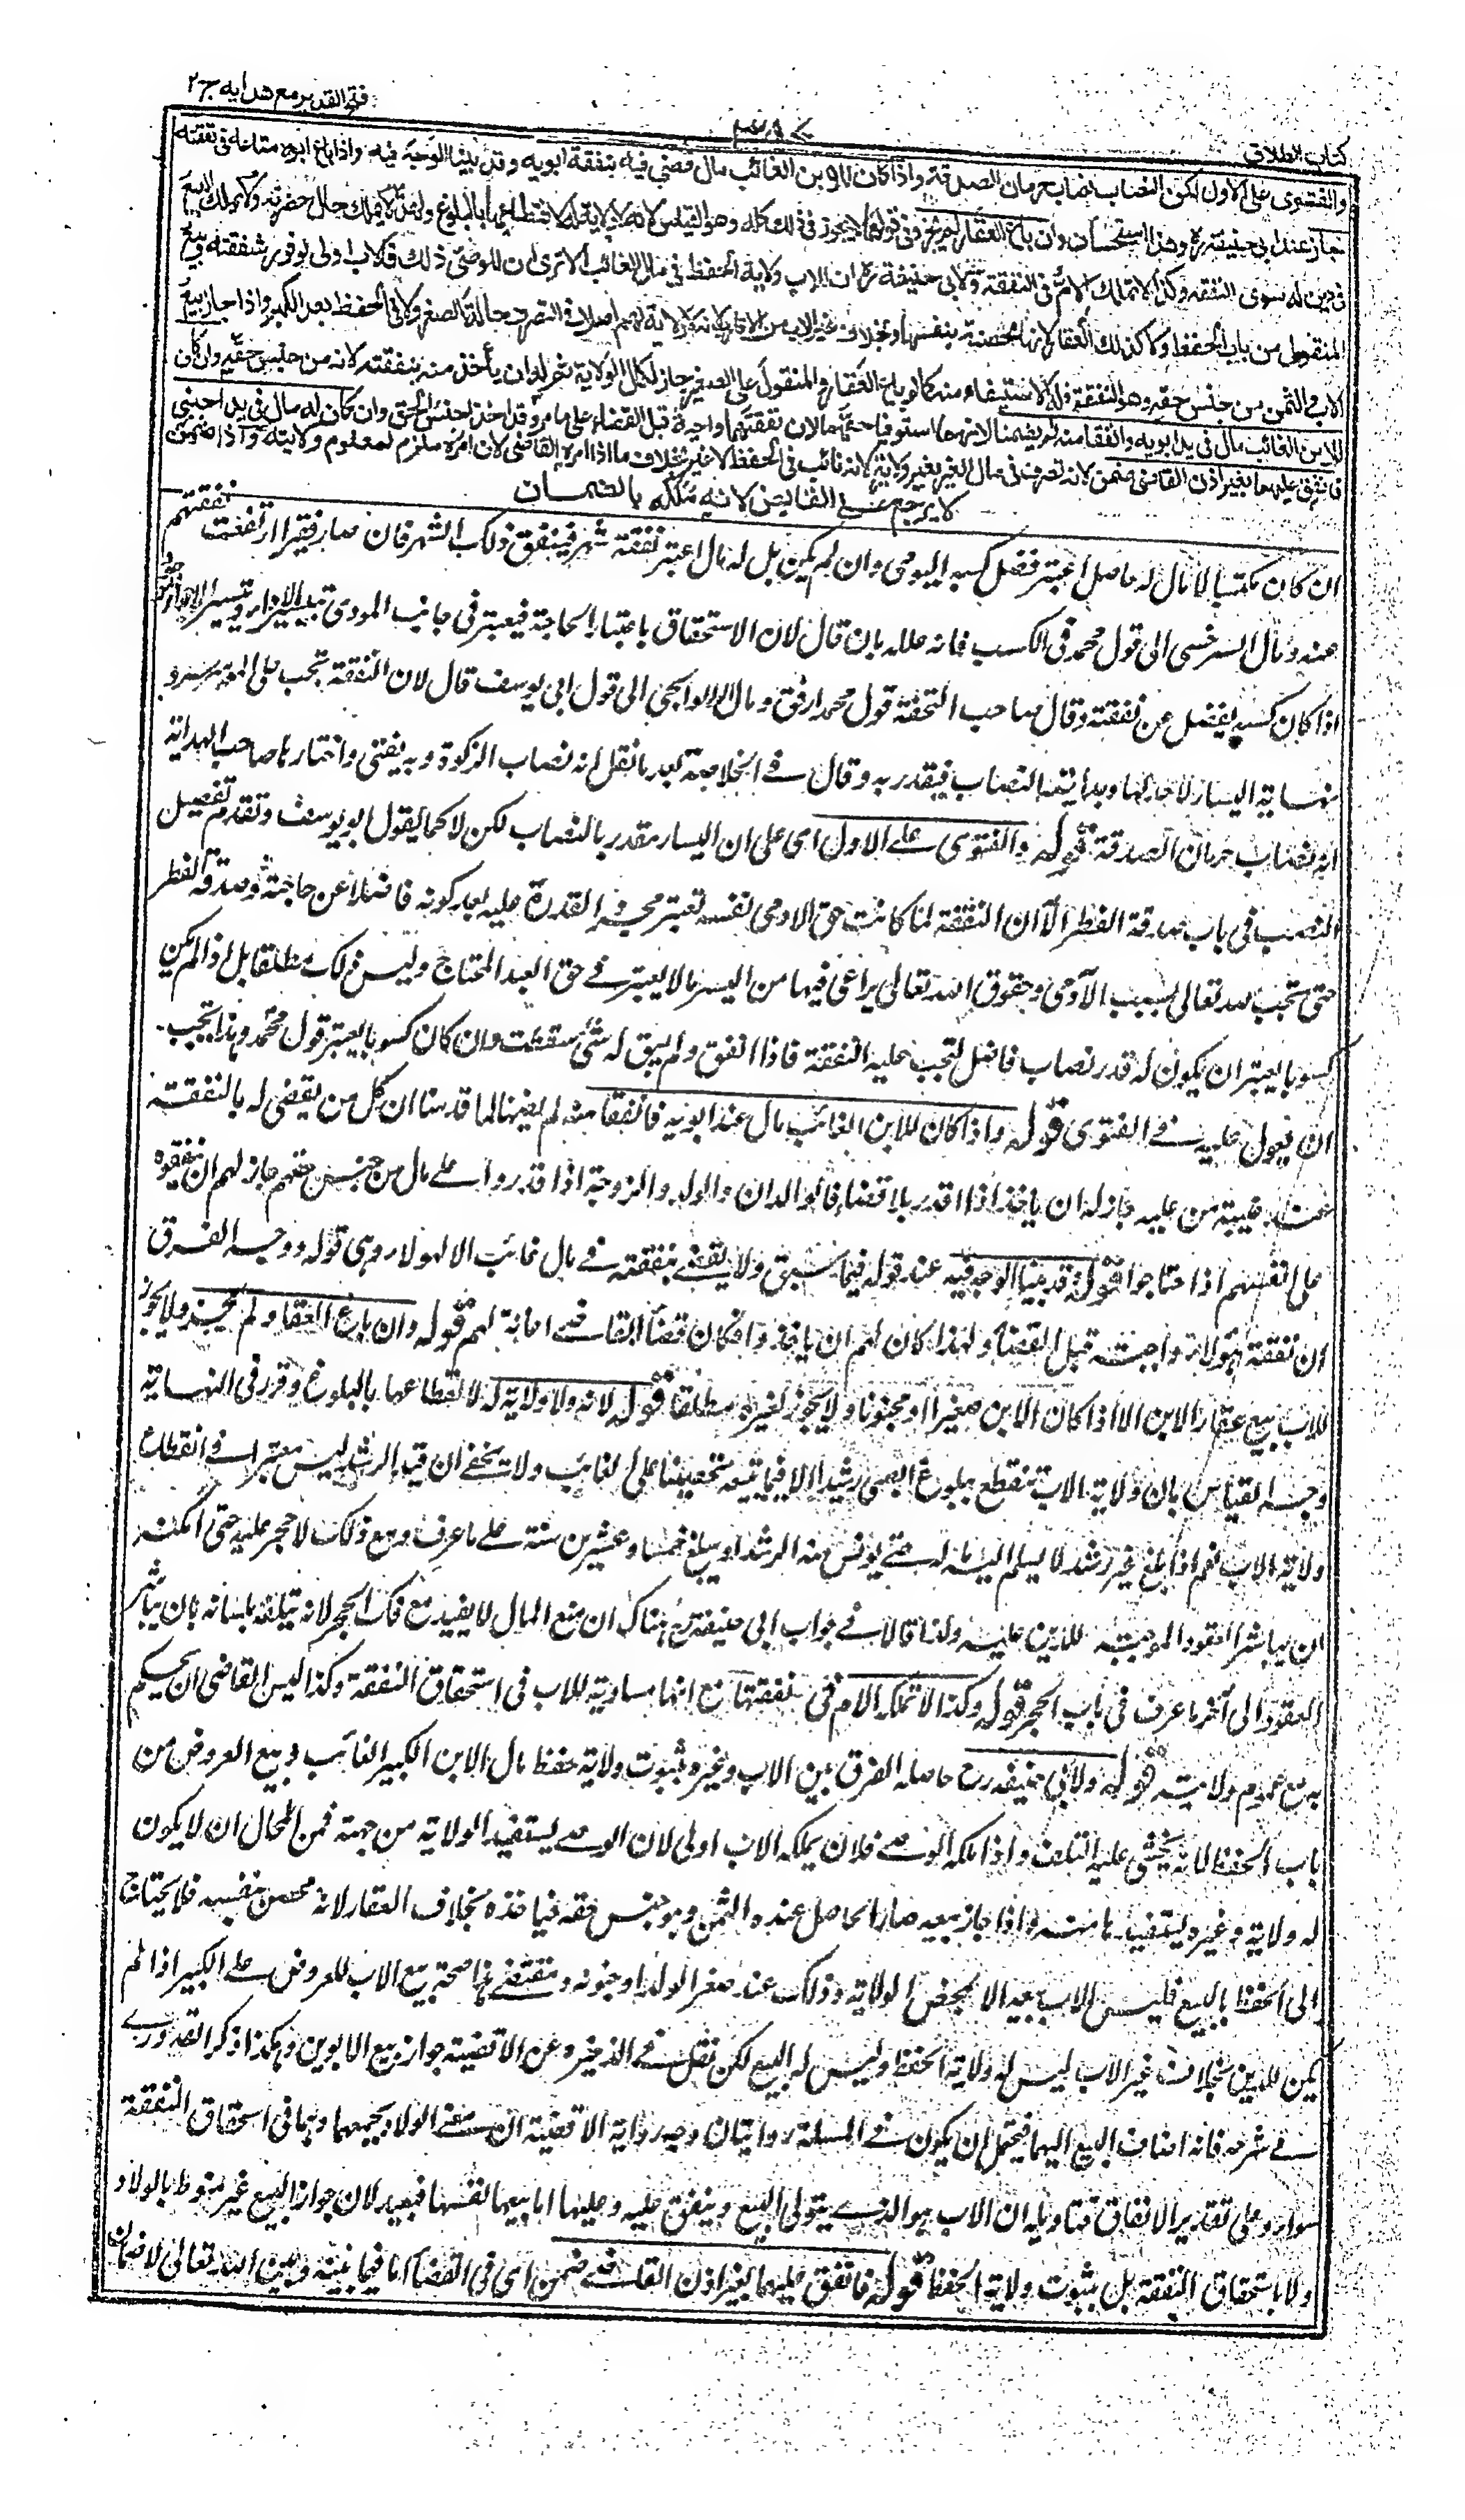 فتح القدير مع هدايه ج٢
كتاب الطلاق
والفتوى على الاول لكن النصاب نصاب حرمان الصدقة واذا كان للابن الغائب مال قضى فيه بنفقة ابويه وقد بينا الوجه فيه واذا باع ابوه متاعه فى نفقته
جاز عند ابى حنيفة رح وهذا استحسان وان باع العقار لم يجز وفى قولهما لا يجوز فى ذلك كله وهو القياس لانه لا ولاية له لانقطاعها بالبلوغ ولهذا لا يملك حال حضرته ولا يملك البيع
فى دين له سوى النفقه وكذا لا تملك الام فى النفقة ولابى حنيفة رح ان للاب ولاية الحفظ فى مال الغائب الا ترى ان للوصى ذلك فالاب اولى لوفور شفقته وبيع
المنقول من باب الحفظ ولا كذلك العقار لانها محصنة بنفسها وبخلاف غير الاب من الاقارب لانه لا ولاية لهم اصلا فى التصرف حالة الصغر ولا فى الحفظ بعد الكبر واذا جاز بيع
الاب فالثمن من جنس حقه وهو النفقة فله الاستيفاء منه كما لو باع العقار والمنقول على الصغير جاز لكمال الولاية ثم له ان يأخذ منه بنفقته لانه من جنس حقه وان كان
للابن الغائب مال فى يد ابويه وانفقا منه لم يضمنا لانهما استوفيا حقهما لان نفقتهما واجبة قبل القضاء على ما مر وقد اخذ جنس الحق وان كان له مال فى يد اجنبى
فانفق عليهما بغير اذن القاضى ضمن لانه تصرف فى مال الغير بغير ولاية لانه نائب فى الحفظ لا غير بخلاف ما اذا امره القاضى لان امره ملزم لعموم ولايته واذا ضمن
لا يرجع على القابض لانه ملكه بالضمان
ان كان مكتسبا لا مال له حاصل اعتبر فضل كسبه اليومى وان لم يكن بل له مال اعتبر نفقة شهر فينفق ذلك الشهر فان صار فقيرا ارتفعت نفقتهم
عنه ومال السرخسى الى قول محمد فى الكسب فانه علله بان قال لان الاستحقاق باعتبار الحاجة فيعتبر فى جانب المودى تيسير الاداء وتيسير الاداء موجود
اذا كان كسبه يفضل عن نفقته وقال صاحب التحفة قول محمد ارفق ومال الولوالجى الى قول ابى يوسف قال لان النفقة تجب على الموسر و
نهاية اليسار لا حد لها وبدايته النصاب فيقدر به وقال فى الخلاصة بعد ما نقل انه نصاب الزكوة وبه يفتى واختار ما صاحب الهداية
انه نصاب حرمان الصدقة قوله والفتوى على الاول اى على ان اليسار مقدر بالنصاب لكن لا كما يقول ابو يوسف وتقدم تفصيل
النصب فى باب صدقة الفطر الا ان النفقة لما كانت حق الادمى نفسه تعتبر مجرد القدرة عليه بعد كونه فاضلا عن حاجته وصدقة الفطر
حتى تجب لله تعالى بسبب الآدمى وحقوق الله تعالى يراعى فيها من اليسر ما لا يعتبر فى حق العبد المحتاج وليس ذلك مطلقا بل اذا لم يكن
كسوبا يعتبر ان يكون له قدر نصاب فاضل لتجب عليه النفقة فاذا انفق ولم يبق له شئ سقطت وان كان كسوبا يعتبر قول محمد وهذا يجب
ان يعول عليه فى الفتوى قوله واذا كان للابن الغائب مال عند ابويه فانفقا منه لم يضمنا لما قدمنا ان كل من يقضى له بالنفقة
عند غيبة من عليه جاز له ان ياخذ اذا قدر بلا قضاء فالوالدان والولد والزوجة اذا قدروا على مال من جنس حقهم جاز لهم ان ينفقوه
على انفسهم اذا احتاجوا قوله قد بينا الوجه فيه عند قوله فيما سبق ولا يقضى بنفقته فى مال غائب الا لهولاء وهى قوله ووجه الفرق
ان نفقة هولاء واجبة قبل القضاء ولهذا كان لهم ان ياخذوا فكان قضاء القاضى اعانة لهم قوله وان باع العقار لم يجز ولا يجوز
للاب بيع عقار الابن الا اذا كان الابن صغيرا او مجنونا ولا يجوز لغيره مطلقا قوله لانه لا ولاية له لانقطاعها بالبلوغ وقرر فى النهاية
وجه القياس بان ولاية الاب تنقطع ببلوغ الصبى رشيدا الا فيما يتبعه تحصينا على الغائب ولا يخفى ان قيد الرشد ليس معتبرا فى انقطاع
ولاية الاب نعم اذا بلغ غير رشد لا يسلم اليه ماله حتى يونس منه الرشد او يبلغ خمسا وعشرين سنة على ما عرف ومع ذلك لا حجر عليه حتى امكنه
ان يباشر العقود الموجبة للدين عليه ولذا قالا فى جواب ابى حنيفة رح هناك ان منع المال لا يفيد مع فك الحجر لانه يتلفه بلسانه بان يباشر
العقود الى آخر ما عرف فى باب الحجر قوله وكذا لا تملك الام فى نفقتها مع انها مساوية للاب فى استحقاق النفقة وكذا ليس للقاضى ان يحكم
به مع عموم ولايته قوله ولابى حنيفة رح حاصله الفرق بين الاب وغيره بثبوت ولاية حفظ مال الابن الكبير الغائب وبيع العروض من
باب الحفظ لانه يخشى عليه التلف واذا ملكه الوصى فلان يملكه الاب اولى لان الوصى يستفيد الولاية من جهته فمن المحال ان لا يكون
له ولاية وغيره يستفيدها منه واذا جاز بيعه صار الحاصل عنده الثمن وهو جنس حقه فياخذه بخلاف العقار لانه محصن بنفسه فلا يحتاج
الى الحفظ بالبيع فليس للاب بيعه الا بمحض الولاية وذلك عند صغر الولد او جنونه ومقتضى هذا صحة بيع الاب للعروض على الكبير اذا لم
يكن للدين بخلاف غير الاب ليس له ولاية الحفظ وليس له البيع لكن نقل فى الذخيره عن الاقضية جواز بيع الابوين وهكذا ذكر القدورى
فى شرحه فانه اضاف البيع اليهما فيحتمل ان يكون فى المسئلة روايتان وجه رواية الاقضية ان معنى الولاد يجمعهما وهما فى استحقاق النفقة
سواء وعلى تقدير الاتفاق فتاويله ان الاب هو الذى يتولى البيع وينفق عليه وعليها اما بيعها لنفسها فبعيد لان جواز البيع غير منوط بالولاد
ولا باستحقاق النفقة بل بثبوت ولاية الحفظ قوله فانفق عليهما بغير اذن القاضى ضمن اى فى القضاء اما فيما بينه وبين الله تعالى لا ضمان